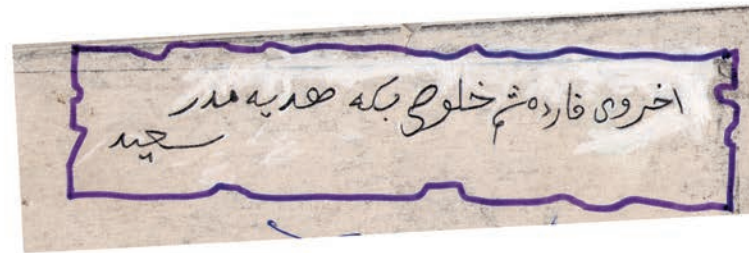 اخروی فارده‌ثم خلوصی بکه هدیه مدر
سعید